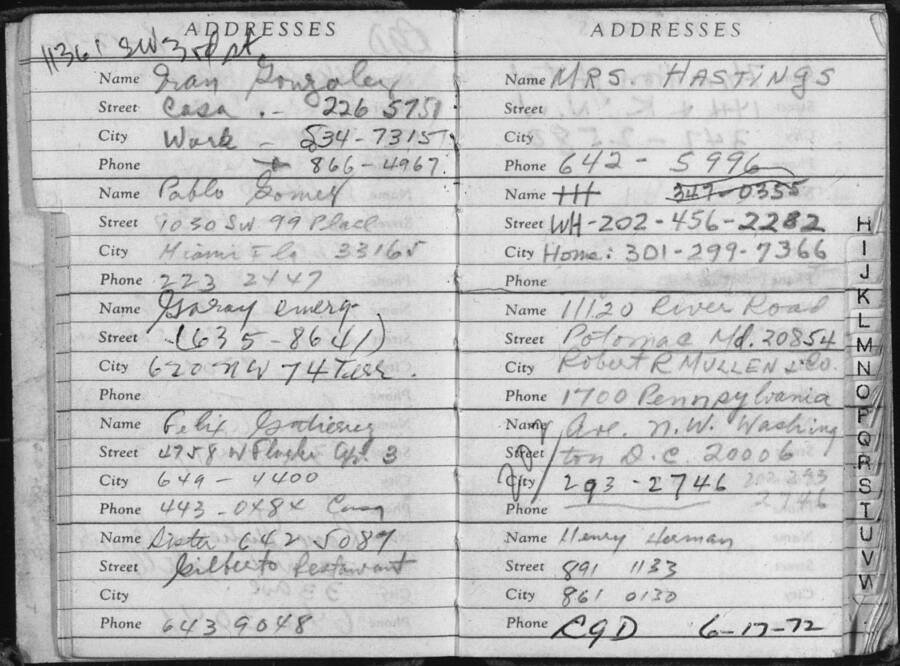 ADDRESSES
11361 SW 3rd pt.
Name Ivan Gonzalez
Street Casa .- 226 5751
City Work - 534-7315
Phone 866-4967
Name Pablo Gomez
Street 1030 SW 99 Place
City Miami Fla 33165
Phone 223 2447
Name Garay emerg.
Street (635-8641)
City 620 NW 74 Terr.
Phone
Name Felix Gutierrez
Street 4758 W Flagler Apt. 3
City 649-4400
Phone 443-0484 Casa
Name Sister 642 5089
Street Gilberto Restaurant
City
Phone 643 9048
ADDRESSES
Name MRS HASTINGS
Street
City
Phone 642-5996
Name HH 347-0355
Street WH-202-456-2282
City Home: 301-299-7366
Phone
Name 11120 River Road
Street Potomac Md. 20854
City Robert R MULLEN & Co.
Phone 1700 Pennsylvania
Name Ave. N.W. Washing
Street ton D.C. 20006
City 293-2746 202 293
Phone 2746
Name Henry Herman
Street 891 1133
City 861 0130
Phone CGD 6-17-72
H
I
J
K
L
M
N
O
P
Q
R
S
T
U
V
W